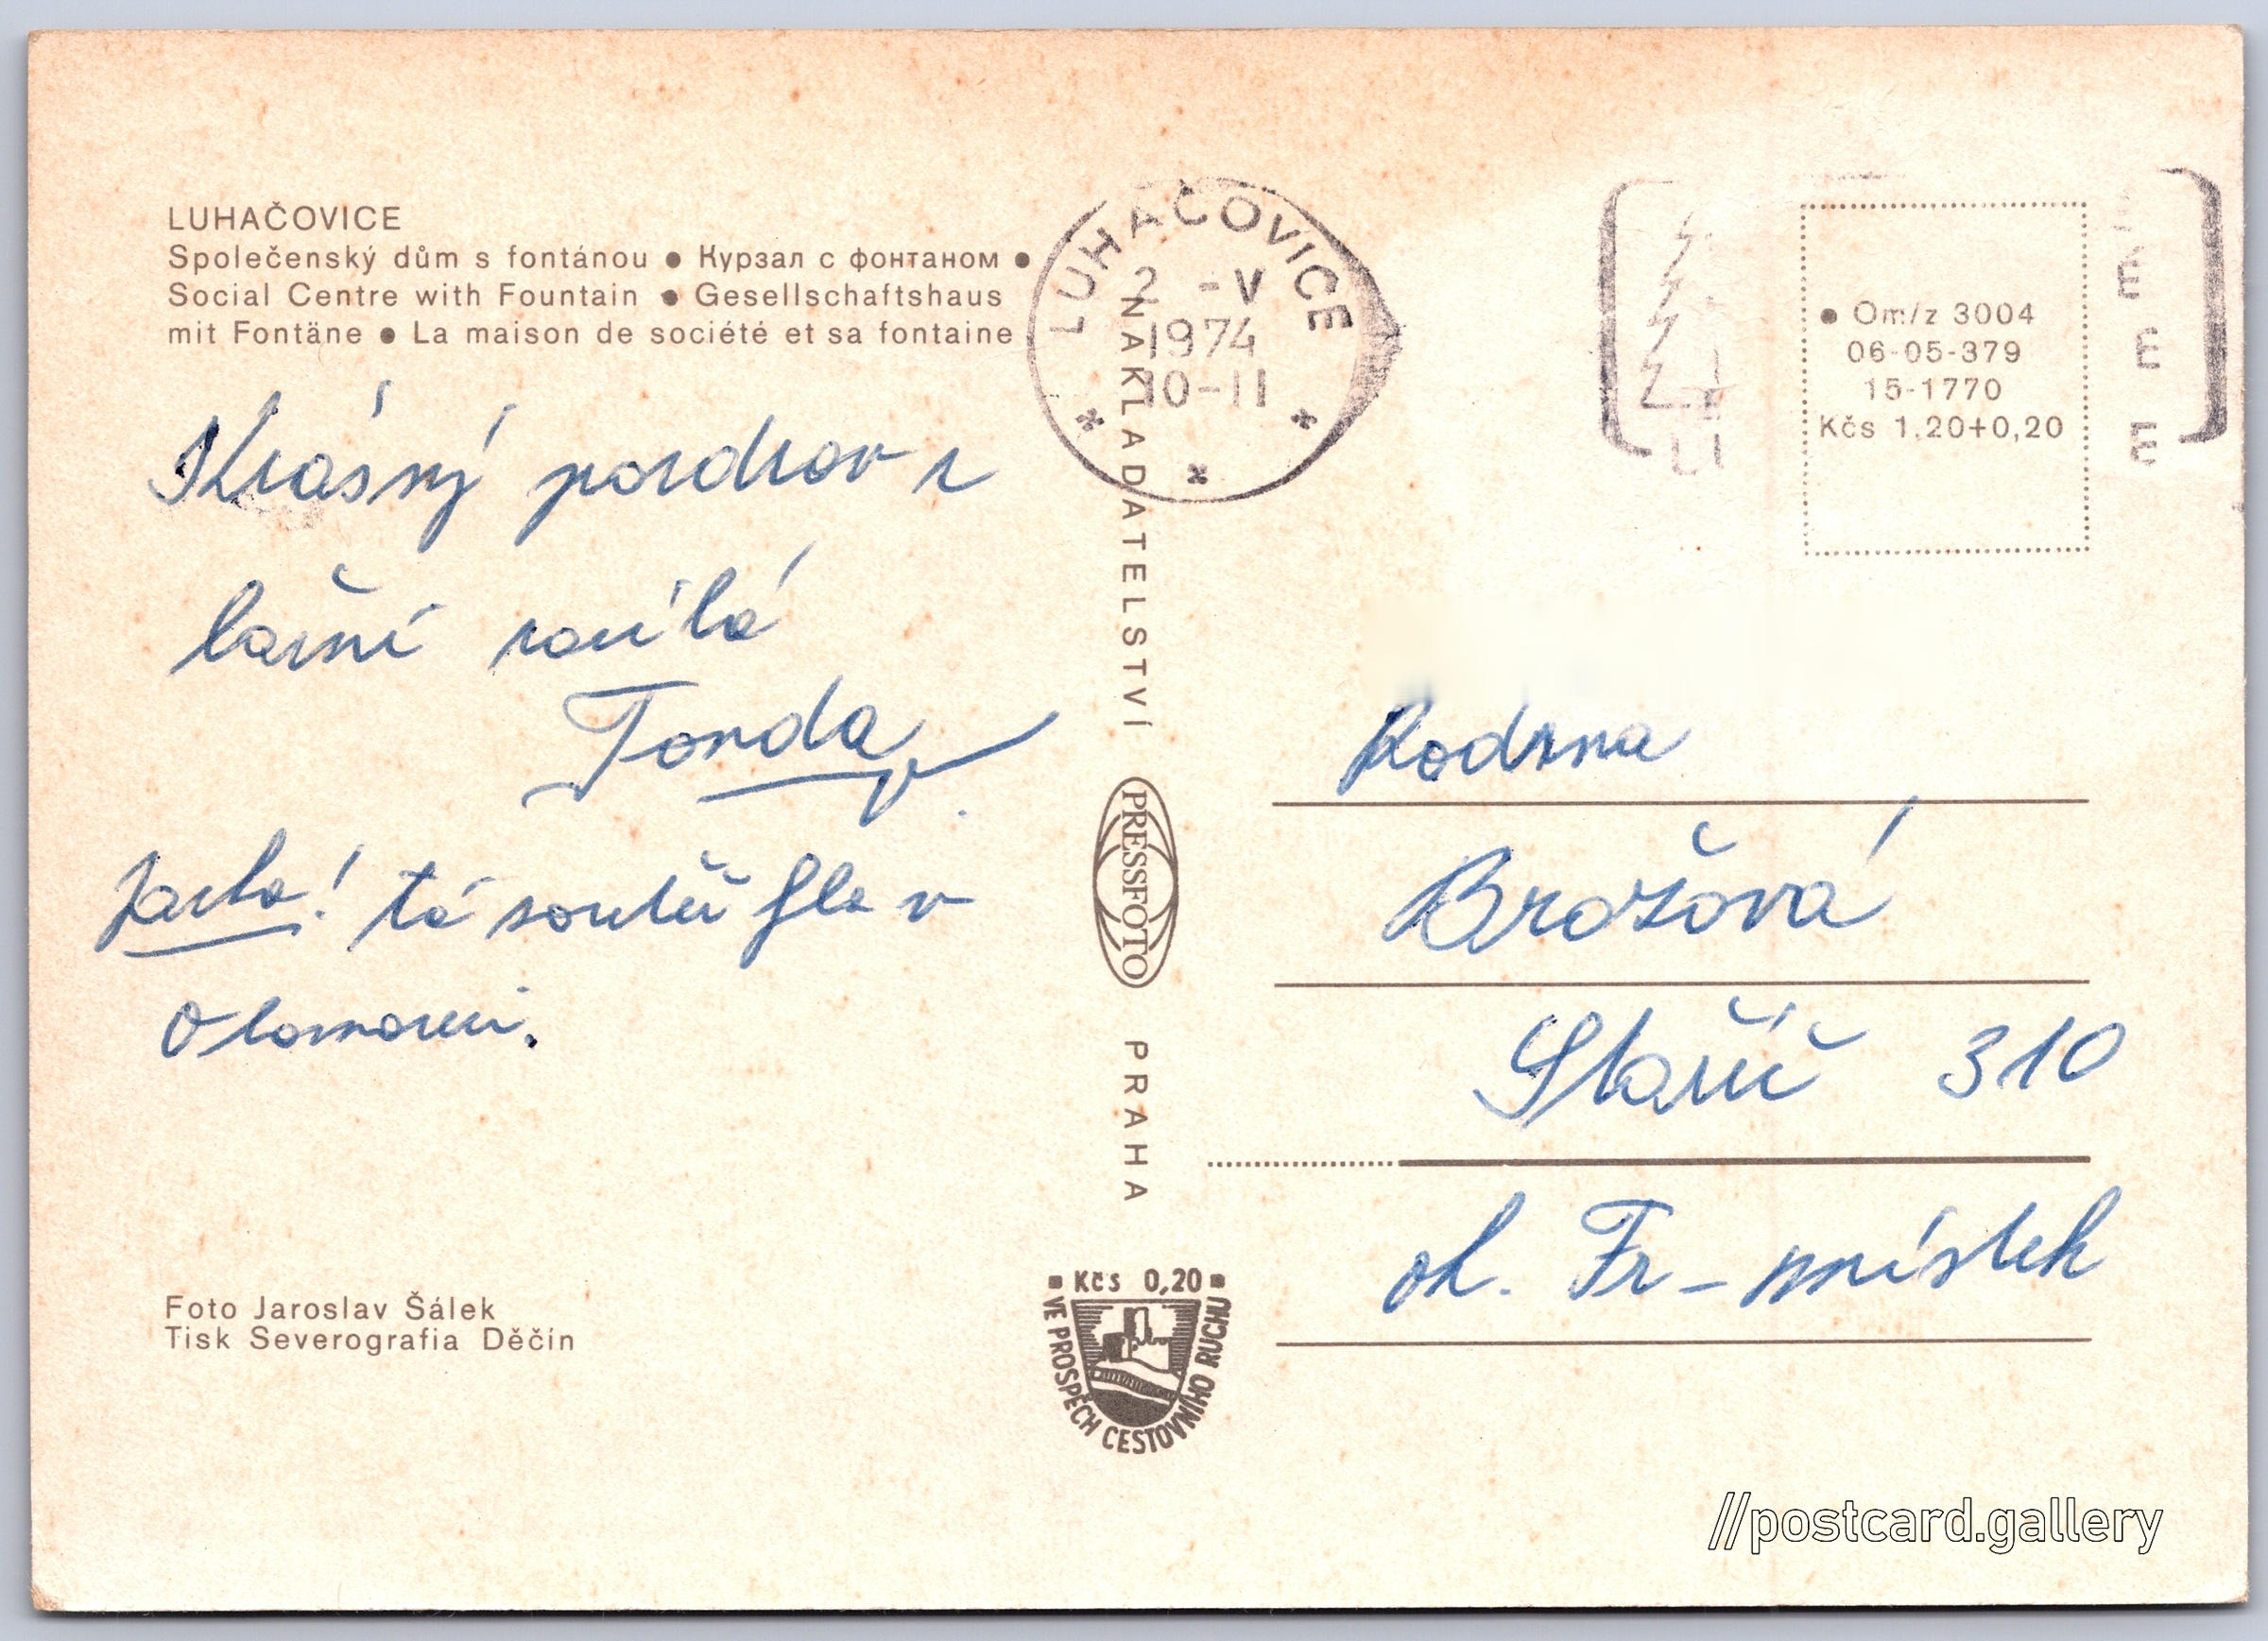 LUHAČOVICE
Společenský dům s fontánou ● Курзал с фонтаном ●
Social Centre with Fountain ● Gesellschaftshaus
mit Fontäne ● La maison de société et sa fontaine
Krásný pozdrav z
lázní zasílá
Tonda
Jarka! tá soutěž šla v
Olomouci.
Foto Jaroslav Šálek
Tisk Severografia Děčín
LUHAČOVICE
2 -V
1974
10-11
NAKLADATELSTVÍ
PRESSFOTO
PRAHA
Kčs 0,20
VE PROSPĚCH CESTOVNÍHO RUCHU
● Om/z 3004
06-05-379
15-1770
Kčs 1.20+0,20
Rodina
Brožová
Staříč 310
ok. Fr-místek
//postcard.gallery